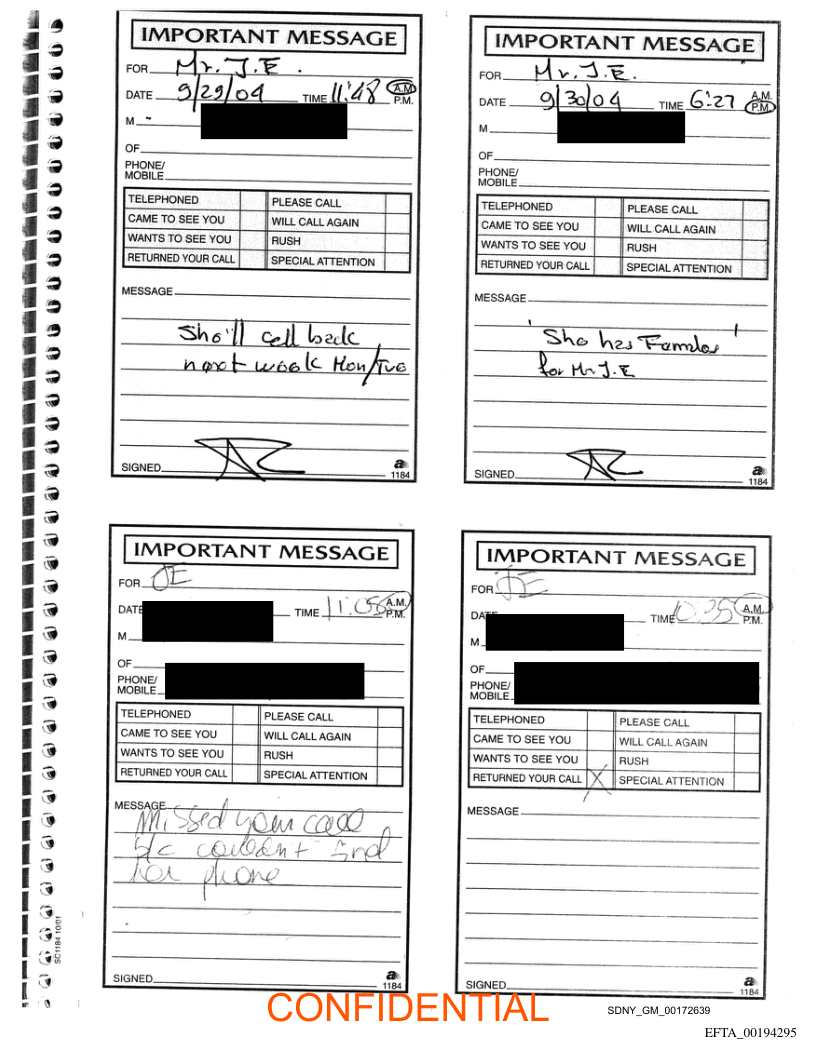 IMPORTANT MESSAGE
FOR Mr. J.E.
DATE 9/29/04 TIME 11:48 A.M. P.M.
M
OF
PHONE/ MOBILE
TELEPHONED PLEASE CALL
CAME TO SEE YOU WILL CALL AGAIN
WANTS TO SEE YOU RUSH
RETURNED YOUR CALL SPECIAL ATTENTION
MESSAGE
She'll call back
next week Mon/Tue
SIGNED
a
1184
IMPORTANT MESSAGE
FOR Mr. J.E.
DATE 9/30/04 TIME 6:27 A.M. P.M.
M
OF
PHONE/ MOBILE
TELEPHONED PLEASE CALL
CAME TO SEE YOU WILL CALL AGAIN
WANTS TO SEE YOU RUSH
RETURNED YOUR CALL SPECIAL ATTENTION
MESSAGE
"She has
for Mr. J.E
SIGNED
a
1184
IMPORTANT MESSAGE
FOR JE
DATE TIME 11:05 A.M. P.M.
M
OF
PHONE/ MOBILE
TELEPHONED PLEASE CALL
CAME TO SEE YOU WILL CALL AGAIN
WANTS TO SEE YOU RUSH
RETURNED YOUR CALL SPECIAL ATTENTION
MESSAGE
Missed your call
b/c couldn't find
her phone
SIGNED
a
1184
IMPORTANT MESSAGE
FOR JE
DATE TIME 10:35 A.M. P.M.
M
OF
PHONE/ MOBILE
TELEPHONED PLEASE CALL
CAME TO SEE YOU WILL CALL AGAIN
WANTS TO SEE YOU RUSH
RETURNED YOUR CALL X SPECIAL ATTENTION
MESSAGE
SIGNED
a
1184
SC1184 10/01
CONFIDENTIAL
SDNY_GM_00172639
EFTA_00194295